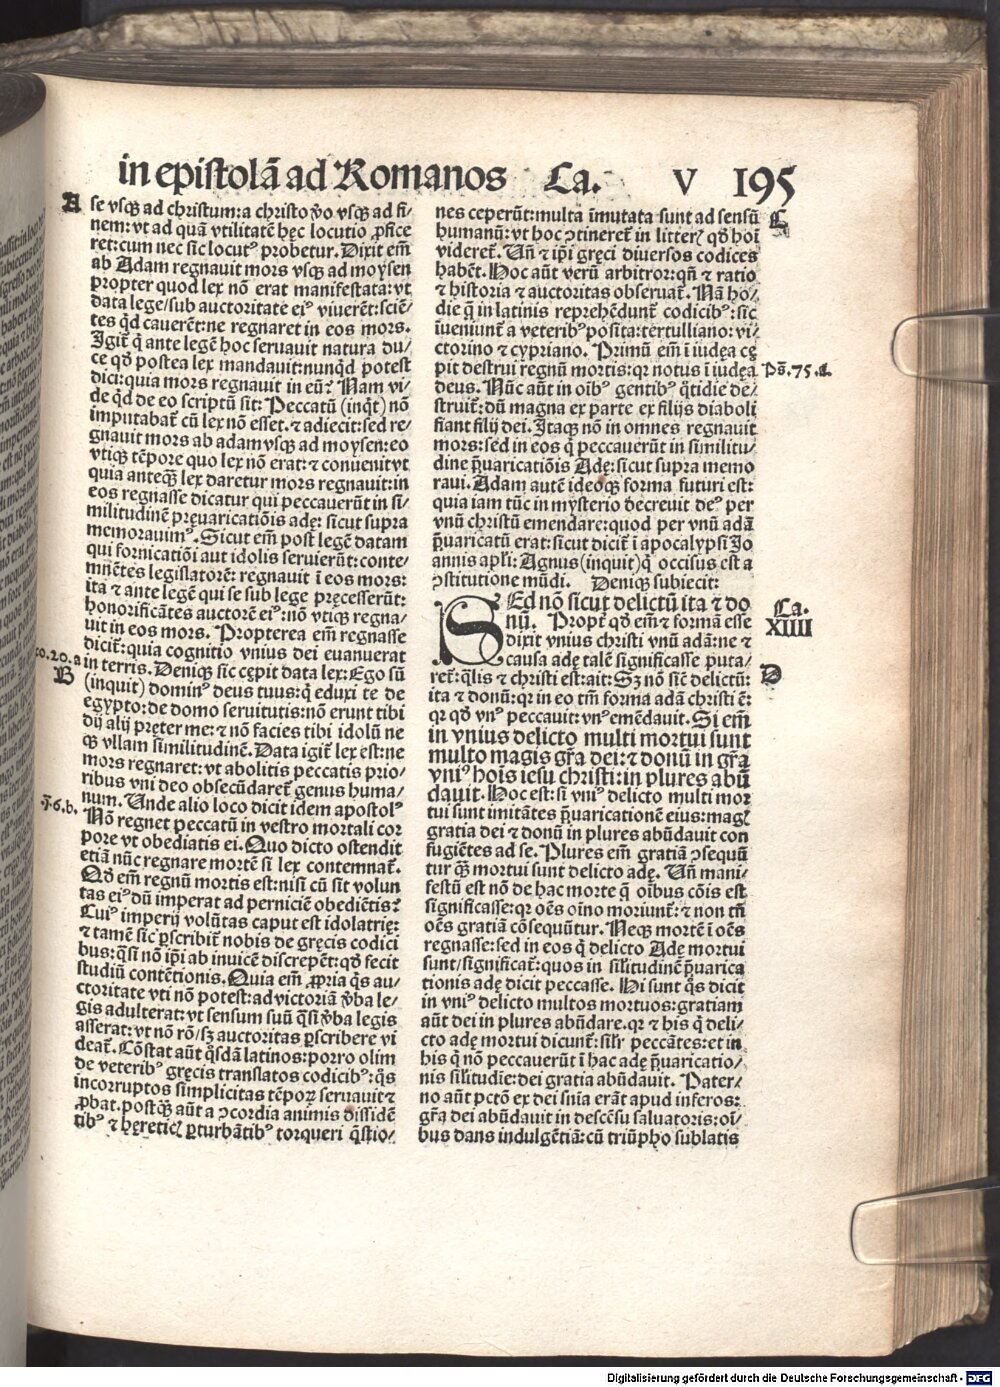 in epistolā ad Romanos Ca. V 195
A
se vsq̄ ad christum: a christo ṽo vsq̄ ad fi/
nem: vt ad quā vtilitatē hęc locutio ꝓfice
ret: cum nec sic locutꝰ probetur. Dixit em̄
ab Adam regnauit mors vsq̄ ad moysen
propter quod lex nō erat manifestata: vt
data lege/sub auctoritate eiꝰ viuerēt: sciē/
tes qd̄ cauerēt: ne regnaret in eos mors.
Igit̄ q̄ ante legē hoc seruauit natura du/
ce qd̄ postea lex mandauit: nunqd̄ potest
dici: quia mors regnauit in eū? Nam vi/
de qd̄ de eo scriptū sit: Peccatū (inqt̄) nō
imputabat̄ cū lex nō esset. ⁊ adiecit: sed re/
gnauit mors ab adam vsq̄ ad moysen: eo
vtiq̄ tēpore quo lex nō erat: ⁊ conuenit vt
quia anteq̄ lex daretur mors regnauit: in
eos regnasse dicatur qui peccauerūt in si/
militudinē pręuaricatiōis adę: sicut supra
memorauimꝰ. Sicut em̄ post legē datam
qui fornicatiōi aut idolis seruierūt: conte/
mnētes legislatorē: regnauit ī eos mors:
ita ⁊ ante legē qui se sub lege pręcesserūt:
honorificātes auctorē eiꝰ: nō vtiq̄ regna/
uit in eos mors. Propterea em̄ regnasse
dicit̄: quia cognitio vnius dei euanuerat
in terris. Deniq̄ sic cępit data lex: Ego sū
(inquit) dominꝰ deus tuus: q̄ eduxi te de
egypto: de domo seruitutis: nō erunt tibi
dij alij pręter me: ⁊ nō facies tibi idolū ne
q̄ vllam similitudinē. Data igit̄ lex est: ne
mors regnaret: vt abolitis peccatis prio/
ribus vni deo obsecūdaret̄ genus huma/
num. Unde alio loco dicit idem apostolꝰ
Nō regnet peccatū in vestro mortali cor
pore vt obediatis ei. Quo dicto ostendit
etiā nūc regnare mortē si lex contemnat̄.
Qd̄ em̄ regnū mortis est: nisi cū sit volun
tas eiꝰ dū imperat ad perniciē obediētis?
Cuiꝰ imperij volūtas caput est idolatrię:
⁊ tamē sic ꝑscribit̄ nobis de gręcis codici
bus: q̄si nō ip̄i ab inuicē discrepēt: qd̄ fecit
studiū contētionis. Quia em̄ ꝓpria q̄s au/
ctoritate vti nō potest: ad victoriā ṽba le/
gis adulterat: vt sensum suū q̄si ṽba legis
asserat: vt nō rō/sꝫ auctoritas ꝑscribere vi
deat̄. Cōstat aūt q̄sdā latinos: porro olim
de veteribꝰ gręcis translatos codicibꝰ: q̄s
incorruptos simplicitas tēpoꝝ seruauit ⁊
ꝓbat. postq̄ aūt a ꝯcordia animis dissidē
tibꝰ ⁊ hęreticꝭ ꝑturbātibꝰ torqueri q̄stio/
co.20.a
B
ꝶ.6.b.
nes ceperūt: multa īmutata sunt ad sensū
humanū: vt hoc ꝯtineret̄ in litterꝭ qd̄ hoī
videret̄. Uñ ⁊ ip̄i gręci diuersos codices
habēt. Hoc aūt verū arbitror: qñ ⁊ ratio
⁊ historia ⁊ auctoritas obseruat̄. Nā ho/
die q̄ in latinis reprehēdunt̄ codicibꝰ: sic
īueniunt̄ a veteribꝰ posita: tertulliano: vi/
ctorino ⁊ cypriano. Primū em̄ ī iudęa cę
pit destrui regnū mortis: qr notus ī iudęa
deus. Nūc aūt in oībꝰ gentibꝰ q̄tidie de/
struit̄: dū magna ex parte ex filijs diaboli
fiant filij dei. Itaq̄ nō in omnes regnauit
mors: sed in eos q̄ peccauerūt in similitu/
dine p̄uaricatiōis Adę: sicut supra memo
raui. Adam autē ideoq̄ forma futuri est:
quia iam tūc in mysterio decreuit deꝰ per
vnū christū emendare: quod per vnū adā
p̄uaricatū erat: sicut dicit̄ ī apocalypsi Jo
annis apl̄i: Agnus (inquit) q̄ occisus est a
ꝯstitutione mūdi. Deniq̄ subiecit:
SEd nō sicut delictū ita ⁊ do
nū. Propt̄ qd̄ em̄ ⁊ formā esse
dixit vnius christi vnū adā: ne ⁊
causa adę talē significasse puta/
ret̄: q̄lis ⁊ christi est: ait: Sꝫ nō sic̄ delictū:
ita ⁊ donū: qr in eo tm̄ forma adā christi ē:
qr qd̄ vnꝰ peccauit: vnꝰ emēdauit. Si em̄
in vnius delicto multi mortui sunt
multo magis gr̄a dei: ⁊ donū in gr̄a
vniꝰ hoīs iesu christi: in plures abū
dauit. Hoc est: si vniꝰ delicto multi mor
tui sunt imitātes p̄uaricationē eius: magꝭ
gratia dei ⁊ donū in plures abūdauit con
fugiētes ad se. Plures em̄ gratiā ꝯsequū
tur q̄ mortui sunt delicto adę. Uñ mani/
festū est nō de hac morte q̄ oībus cōis est
significasse: qr oēs oīno moriunt̄: ⁊ non tn̄
oēs gratiā cōsequūtur. Neq̄ mortē ī oēs
regnasse: sed in eos q̄ delicto Adę mortui
sunt/significat̄: quos in sil̄itudinē p̄uarica
tionis adę dicit peccasse. Hi sunt q̄s dicit
in vniꝰ delicto multos mortuos: gratiam
aūt dei in plures abūdare. qr ⁊ his q̄ deli/
cto adę mortui dicunt̄: sil̄r peccātes: et in
his q̄ nō peccauerūt ī hac adę p̄uaricatio/
nis sil̄itudīe: dei gratia abūdauit. Pater/
no aūt pctō ex dei snīa erāt apud inferos:
gr̄a dei abūdauit in descēsu saluatoris: oī/
bus dans indulgētiā: cū triūpho sublatis
C
Pͣ. 75. a.
Ca.
XIIII
D
Digitalisierung gefördert durch die Deutsche Forschungsgemeinschaft - DFG